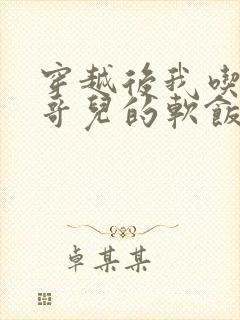 穿越後我喫
哥兒的軟飯
卓某某